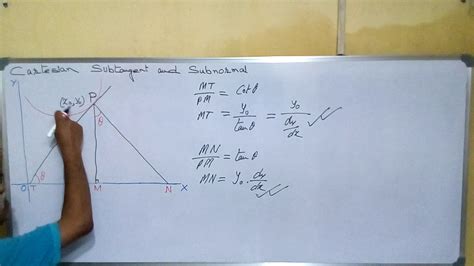 Cartesian Subtangent and Subnormal
Y
(x₀, y₀)
P
θ
θ
O T M N X
MT/PM = Cot θ
MT = y₀/tan θ = y₀/(dy/dx)
MN/PM = tan θ
MN = y₀ · dy/dx